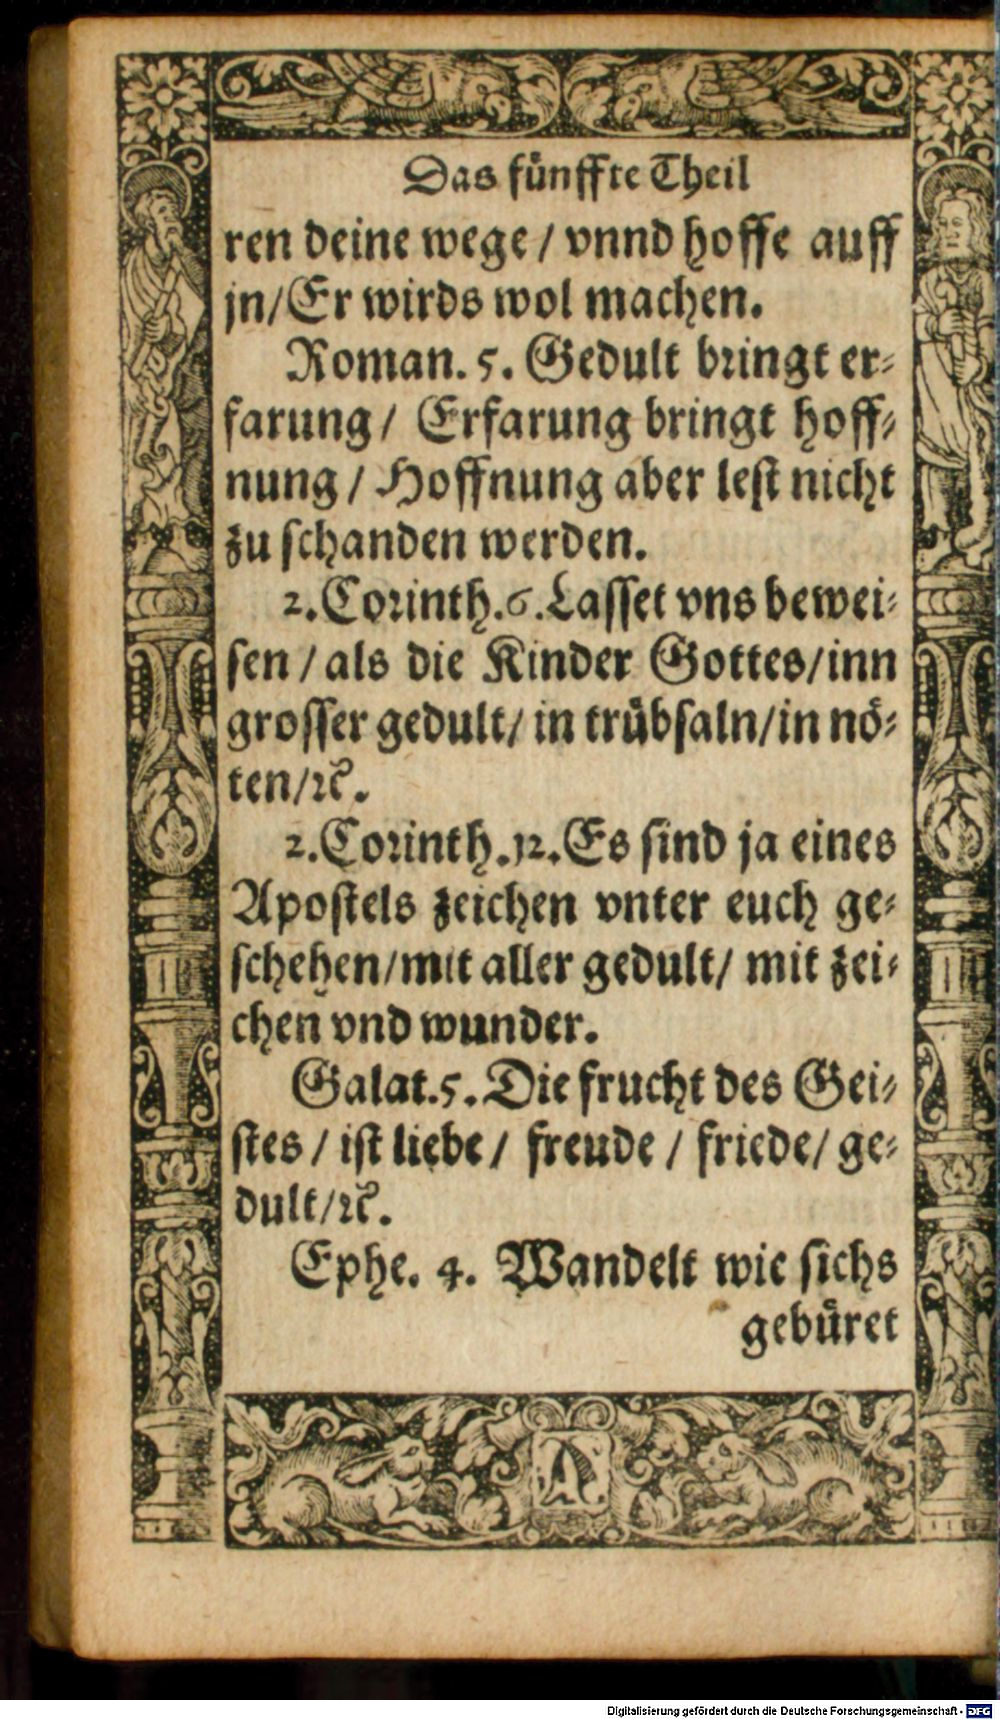 Das fünffte Theil
ren deine wege / vnnd hoffe auff
jn/Er wirds wol machen.
Roman. 5. Gedult bringt er-
farung / Erfarung bringt hoff-
nung / Hoffnung aber lest nicht
zu schanden werden.
2. Corinth. 6. Lasset vns bewei-
sen / als die Kinder Gottes/inn
grosser gedult/ in trübsaln/in nö-
ten/ꝛc.
2. Corinth. 12. Es sind ja eines
Apostels zeichen vnter euch ge-
schehen/mit aller gedult/ mit zei-
chen vnd wunder.
Galat. 5. Die frucht des Gei-
stes / ist liebe / freude / friede/ ge-
dult/ꝛc.
Ephe. 4. Wandelt wie sichs
gebüret
A
Digitalisierung gefördert durch die Deutsche Forschungsgemeinschaft - DFG